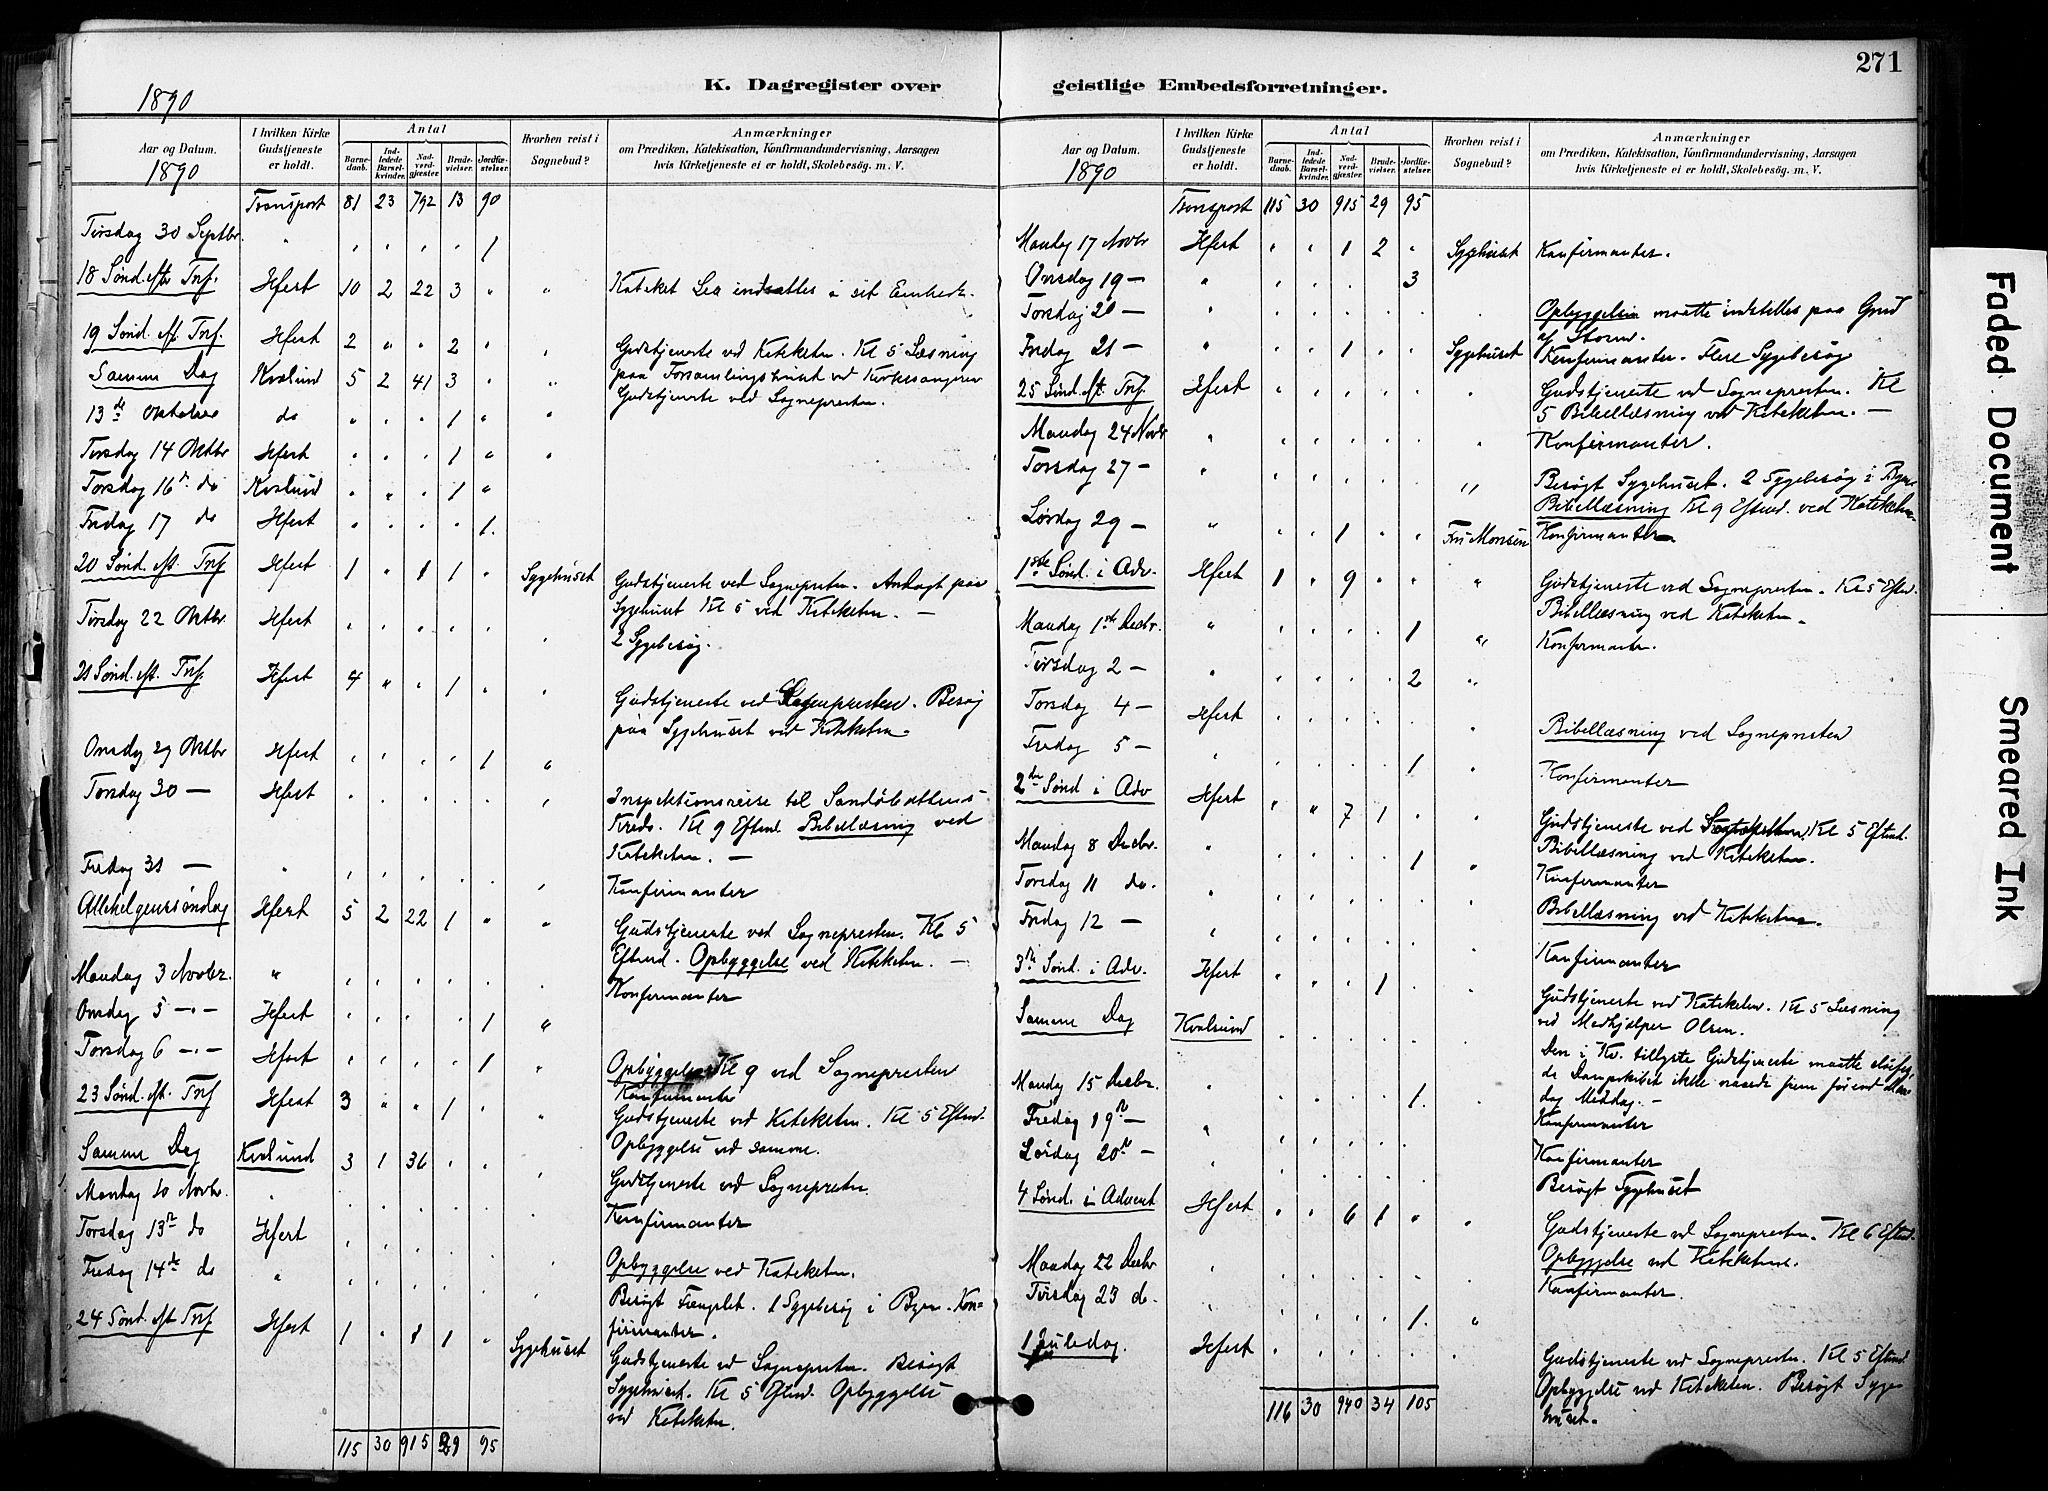 271
K. Dagregister over geistlige Embedsforretninger.
1890
Aar og Datum.
1890
I hvilken Kirke Gudstjeneste er holdt.
Antal
Barnedaab.
Indledede Barselkvinder.
Nadverdgjæster.
Brudevielser.
Jordfæstelser.
Hvorhen reist i Sognebud?
Anmærkninger
om Prædiken, Katekisation, Konfirmandundervisning, Aarsagen
hvis Kirketjeneste ei er holdt, Skolebesög. m. V.
Transport 81 23 792 13 90
Tirsdag 30 Septbr. " " " " " 1
18 Sönd. eft. Trf. Hfest 10 2 22 3 " " Kateket Lea indsattes i sit Embede.
19 Sönd. eft. Trf. Hfest 2 " " 2 " " Gudstjeneste ved Kateketen. Kl 5 Læsning
paa Forsamlingshuset ved Kirkesangeren
Samme Dag Kvalsund 5 2 41 3 " " Gudstjeneste ved Sognepresten.
13de Oktober do " " " 1 " "
Tirsdag 14 Oktbr Hfest " " " 1 " "
Torsdag 16 do Kvalsund " " " 1 "
Fredag 17 do Hfest " " " " 1.
20 Sönd. eft. Trf Hfest 1 " 1 1 " Sygehuset Gudstjeneste ved Sognepresten. Andagt paa
Sygehuset Kl 5 ved Kateketen. —
Tirsdag 22 Oktbr. Hfest " " " " " " 2 Sygebesøg.
21 Sönd. eft. Trf. Hfest 4 " " 1 " " Gudstjeneste ved Sognepresten. Besøg
paa Sygehuset ved Kateketen.
Onsdag 29 Oktbr Hfest " " " " 1 "
Torsdag 30 — Hfest " " " " " " Inspektionsreise til
Kreds. Kl 9 Eftmd. Bibellæsning ved
Kateketen. —
Fredag 31 — " " " " " " " Konfirmanter
Allehelgenssøndag Hfest 5 2 22 1 " " Gudstjeneste ved Sognepresten. Kl 5
Eftmd. Opbyggelse ved Kateketen. —
Mandag 3 Novbr. " " " " " " " Konfirmanter
Onsdag 5 -"- Hfest " " " " 1 "
Torsdag 6 -"- Hfest " " " " 1 " Opbyggelse Kl 9 ved Sognepresten
Konfirmanter
23 Sönd. eft. Trf Hfest 3 " " 1 " " Gudstjeneste ved Kateketen. Kl 5 Eftmd.
Opbyggelse ved samme.
Samme Dag Kvalsund 3 1 36 " " " Gudstjeneste ved Sognepresten
Mandag 10 Novbr. " " " " " " " Konfirmanter
Torsdag 13 do Hfest " " " " " " Opbyggelse ved Kateketen.
Fredag 14de do " " " " " " " Besøgt Fængslet. 1 Sygebesøg i Byen. Kon=
firmanter.
24 Sönd. eft Trf Hfest 1 " 1 1 " Sygehuset Gudstjeneste ved Sognepresten. Besøgt
Sygehuset. Kl 5 Eftmd. Opbyggelse
ved Kateketen.
115 30 915 29 95
Aar og Datum.
1890
I hvilken Kirke Gudstjeneste er holdt.
Antal
Barnedaab.
Indledede Barselkvinder.
Nadverdgjæster.
Brudevielser.
Jordfæstelser.
Hvorhen reist i Sognebud?
Anmærkninger
om Prædiken, Katekisation, Konfirmandundervisning, Aarsagen
hvis Kirketjeneste ei er holdt, Skolebesög. m. V.
Transport 115 30 915 29 95
Mandag 17 Novbr Hfest " " 1 2 " Sygehuset Konfirmanter.
Onsdag 19 — " " " " " 3
Torsdag 20 — " " " " " " " Opbyggelsen maatte indstilles paa Grund
af Storm.
Fredag 21 — " " " 1 " " Sygehuset Konfirmanter. Flere Sygebesøg
25 Sönd. eft. Trf. Hfest " " " " " " Gudstjeneste ved Sognepresten. Kl
5 Bibellæsning ved Kateketen. —
Mandag 24 Novbr " " " " " " " Konfirmanter.
Torsdag 27 — " " " " " " " Besøgt Sygehuset. 2 Sygebesøg i Byen.
Bibellæsning Kl 9 Eftmd. ved Kateketen.
Lørdag 29 — " " " 1 " " Fru Monsen Konfirmanter.
1ste Sönd. i Adv. Hfest 1 " 9 " " " Gudstjeneste ved Sognepresten. Kl 5 Eftmd.
Bibellæsning ved Kateketen.
Mandag 1ste Decbr. " " " " " 1 " Konfirmanter.
Tirsdag 2 — " " " " " 2 "
Torsdag 4 — Hfest " " " " " " Bibellæsning ved Sognepresten
Fredag 5 — " " " " " 1 " Konfirmanter
2den Sönd i Adv Hfest " " 7 1 " " Gudstjeneste ved Kl 5 Eftmd.
Bibellæsning ved Kateketen.
Mandag 8 Decbr. " " " " " 1 " Konfirmanter
Torsdag 11 do. " " " " " " " Bibellæsning ved Kateketen.
Fredag 12 — " " " " " " " Konfirmanter
3die Sönd. i Adv. Hfest " " " 1 " " Gudstjeneste ved Kateketen. Kl 5 Læsning
ved Medhjælper Olsen.
Samme Dag Kvalsund " " " " " " Den i Kv. tillyste Gudstjeneste maatte
da Dampskibet ikke naaede frem förend
dag Middag. —
Mandag 15 Decbr. " " " " " 1. " Konfirmanter
Fredag 19 — " " " " " " " Konfirmanter
Lørdag 20 — " " " " " " " Besøgt Sygehuset
4 Sönd. i Advent Hfest " " 6 1 " " Gudstjeneste ved Sognepresten. Kl 6 Eftmd.
Opbyggelse ved Kateketen.
Mandag 22 Decbr " " " " " " " Konfirmanter.
Tirsdag 23 do. " " " " " 1. "
1 Juledag. Hfest " " " " " " Gudstjeneste ved Sognepresten. Kl 5 Eftmd.
Opbyggelse ved Kateketen. Besøgt Syge
huset.
116 30 940 34 105
Faded Document
Smeared Ink